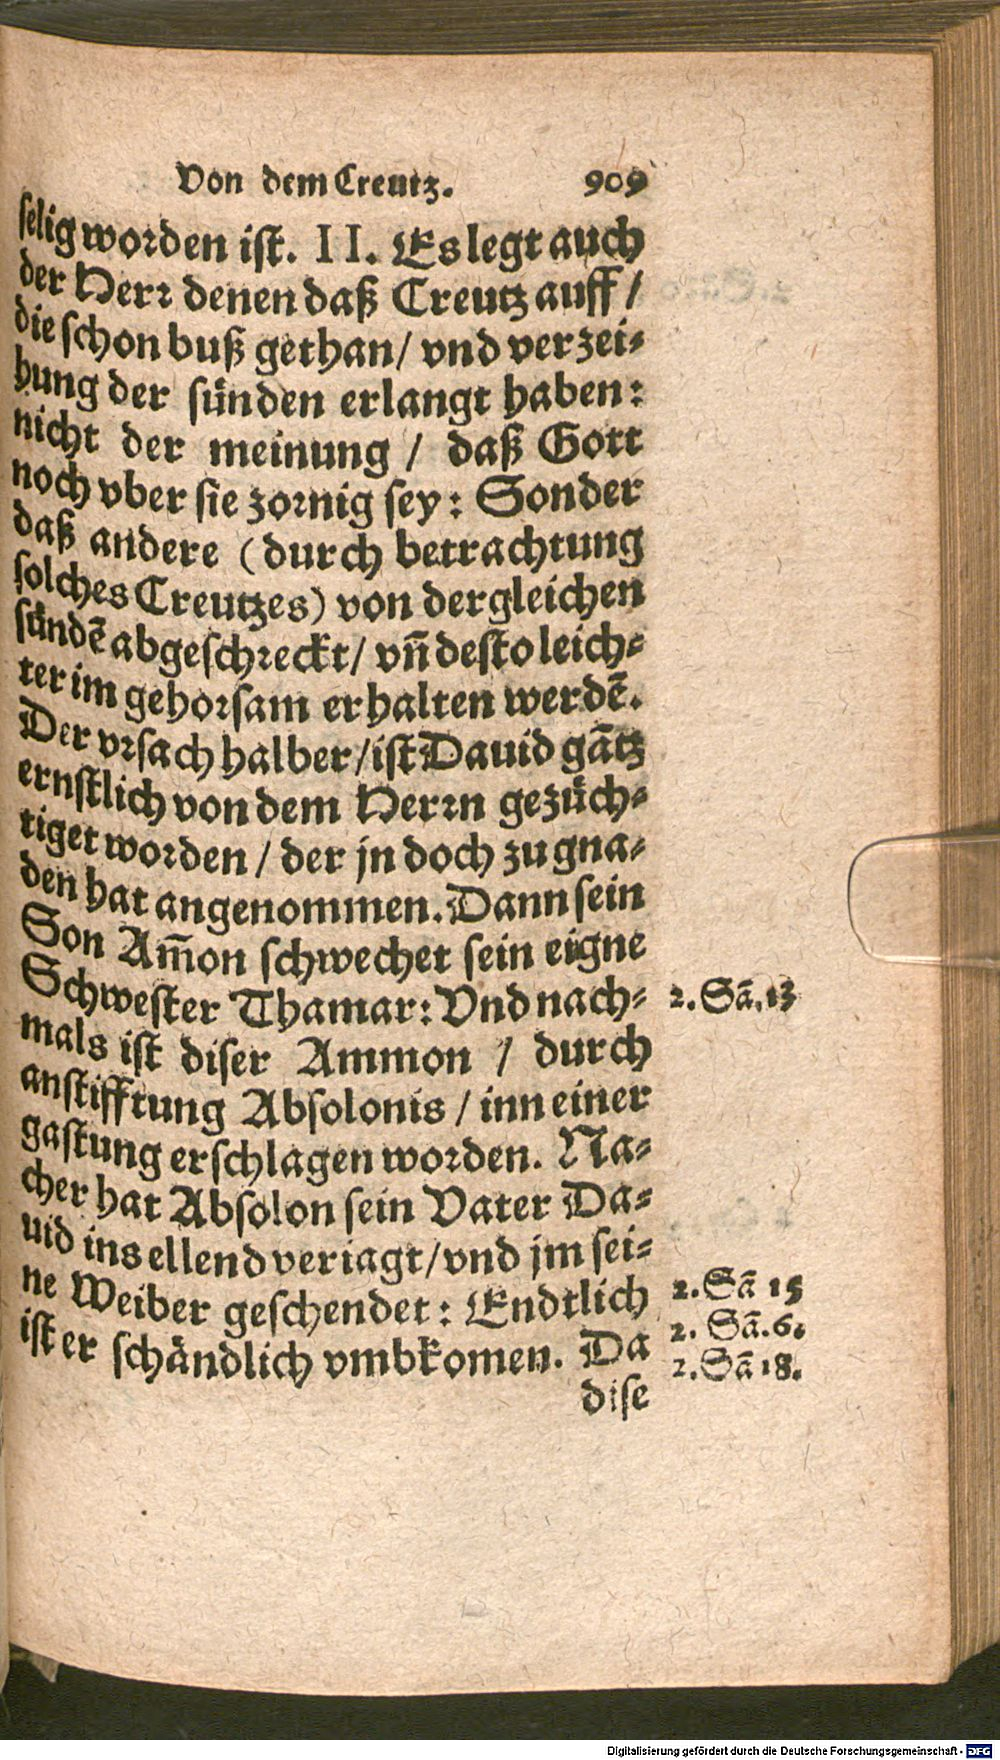 Von dem Creutz. 909
selig worden ist. II. Es legt auch
der Herr denen daß Creutz auff /
die schon buß gethan / vnd verzei-
hung der sünden erlangt haben:
nicht der meinung / daß Gott
noch vber sie zornig sey: Sonder
daß andere (durch betrachtung
solches Creutzes) von dergleichen
sündē abgeschreckt / vn̄ desto leich-
ter im gehorsam erhalten werdē.
Der vrsach halber / ist Dauid gātz
ernstlich von dem Herrn gezüch-
tiget worden / der jn doch zu gna-
den hat angenommen. Dann sein
Son Am̄on schwechet sein eigne
Schwester Thamar: Vnd nach-
2. Sā. 13
mals ist diser Ammon / durch
anstifftung Absolonis / inn einer
gastung erschlagen worden. Na-
cher hat Absolon sein Vater Da-
uid ins ellend veriagt / vnd jm sei-
ne Weiber geschendet: Endtlich
2. Sā 15
2. Sā. 6.
ist er schändlich vmbkomen. Da
2. Sā 18.
dise
Digitalisierung gefördert durch die Deutsche Forschungsgemeinschaft - DFG